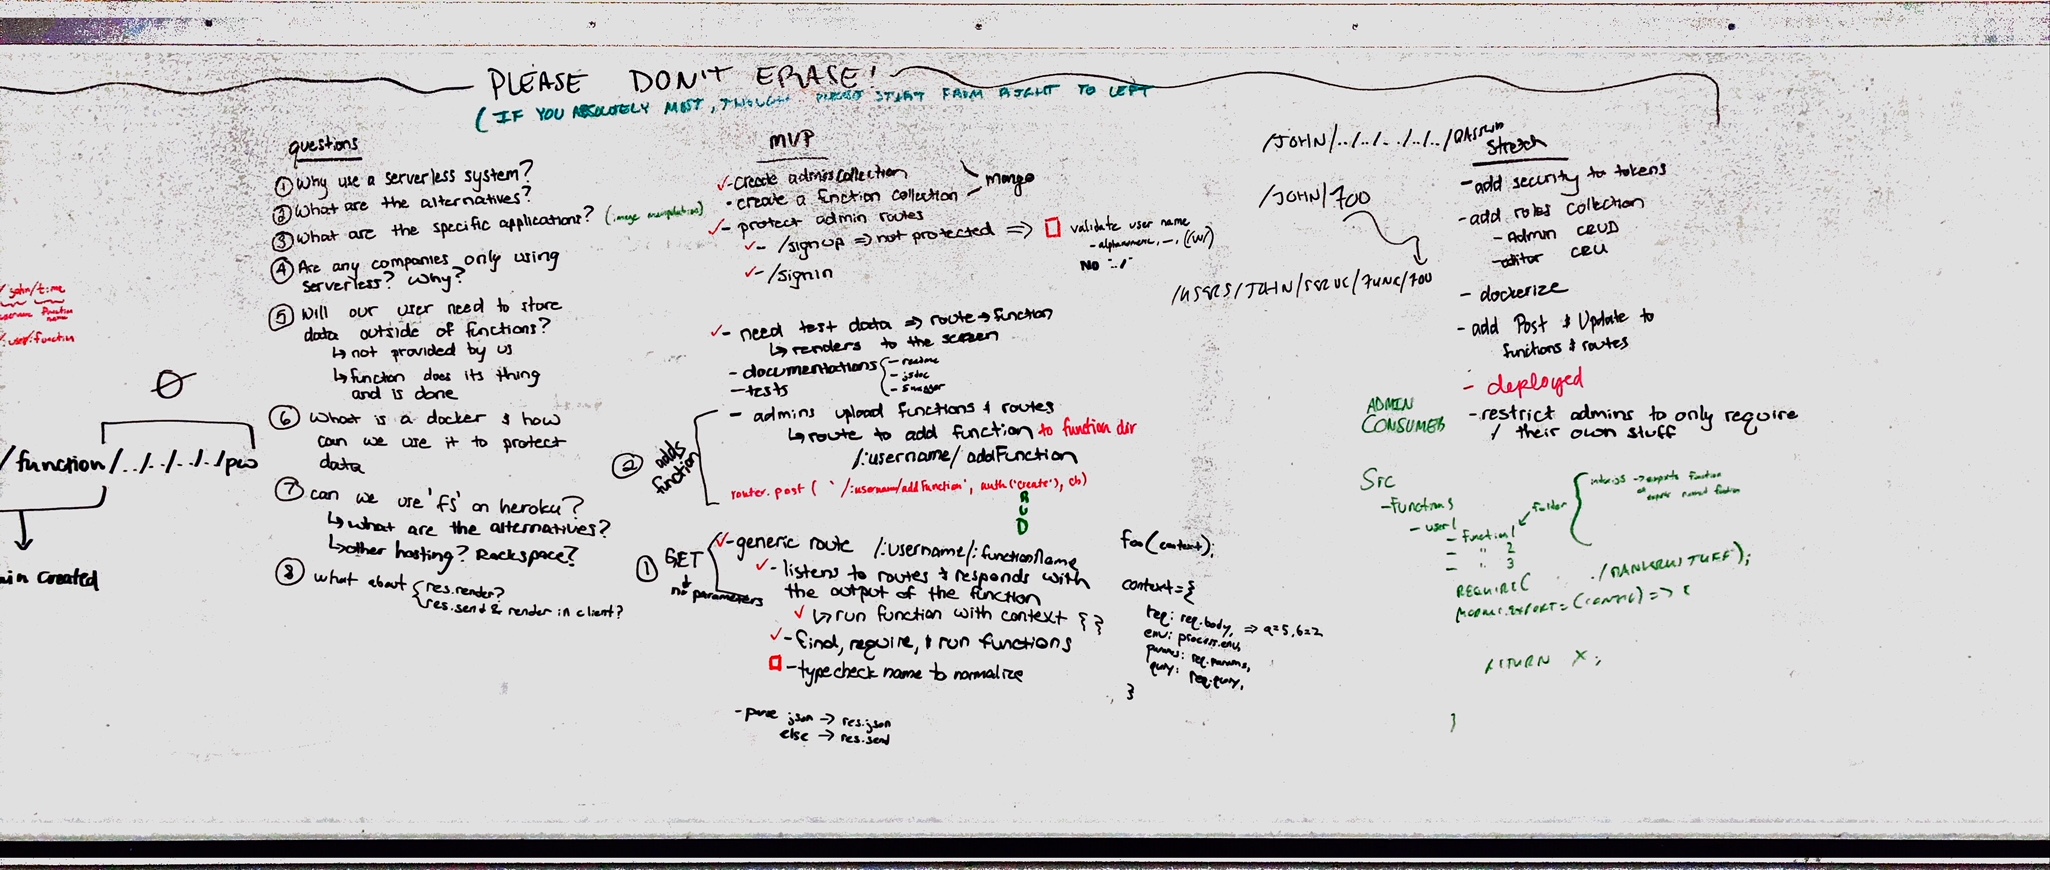 PLEASE DON'T ERASE!
(IF YOU ABSOLUTELY MUST, THOUGH PLEASE START FROM RIGHT TO LEFT
john/time
function name
:user/:function
/function/../../../../pw
created
questions
① Why use a serverless system?
② What are the alternatives?
③ What are the specific applications? (image manipulation)
④ Are any companies only using
serverless? Why?
⑤ Will our user need to store
data outside of functions?
↳ not provided by us
↳ function does its thing
and is done
⑥ What is a docker & how
can we use it to protect
data
⑦ can we use 'fs' on heroku?
↳ what are the alternatives?
↳ other hosting? Rackspace?
⑧ what about { res.render?
res.send & render in client?
MVP
✓- create admin collection
- create a function collection > mongo
✓- protect admin routes
✓- /signup => not protected => □ validate user name
- alphanumeric, -, (\w)
NO "./"
✓- /signin
✓- need test data => route → function
↳ renders to the screen
- documentations { - readme
- jsdoc
- swagger
- tests
② adds function
- admins upload functions & routes
↳ route to add function to function dir
/:username/addFunction
router.post( '/:username/addFunction', auth('create'), cb)
R
U
D
① GET
↓
no parameters
✓- generic route /:username/:functionName
✓- listens to routes & responds with
the output of the function
✓ ↳ run function with context { }
✓- find, require, & run functions
□ - typecheck name to normalize
- parse json → res.json
else → res.send
foo(context);
context = {
req: req.body, => a=5, b=2
env: process.env,
params: req.params,
query: req.query,
}
/JOHN/../../../../../
/JOHN/FOO
/USERS/JOHN/SERVC/FUNC/FOO
Stretch
- add security to tokens
- add roles collection
- Admin CRUD
- editor CRU
- dockerize
- add Post & Update to
functions & routes
- deployed
- restrict admins to only require
their own stuff
ADMIN
CONSUMER
Src
- Functions
- user1
- function1 ← folder { index.js → exports function
or
exports named function
- " 2
- " 3
REQUIRE(
MODULE.EXPORT = (CONFIG) => {
RETURN X;
}